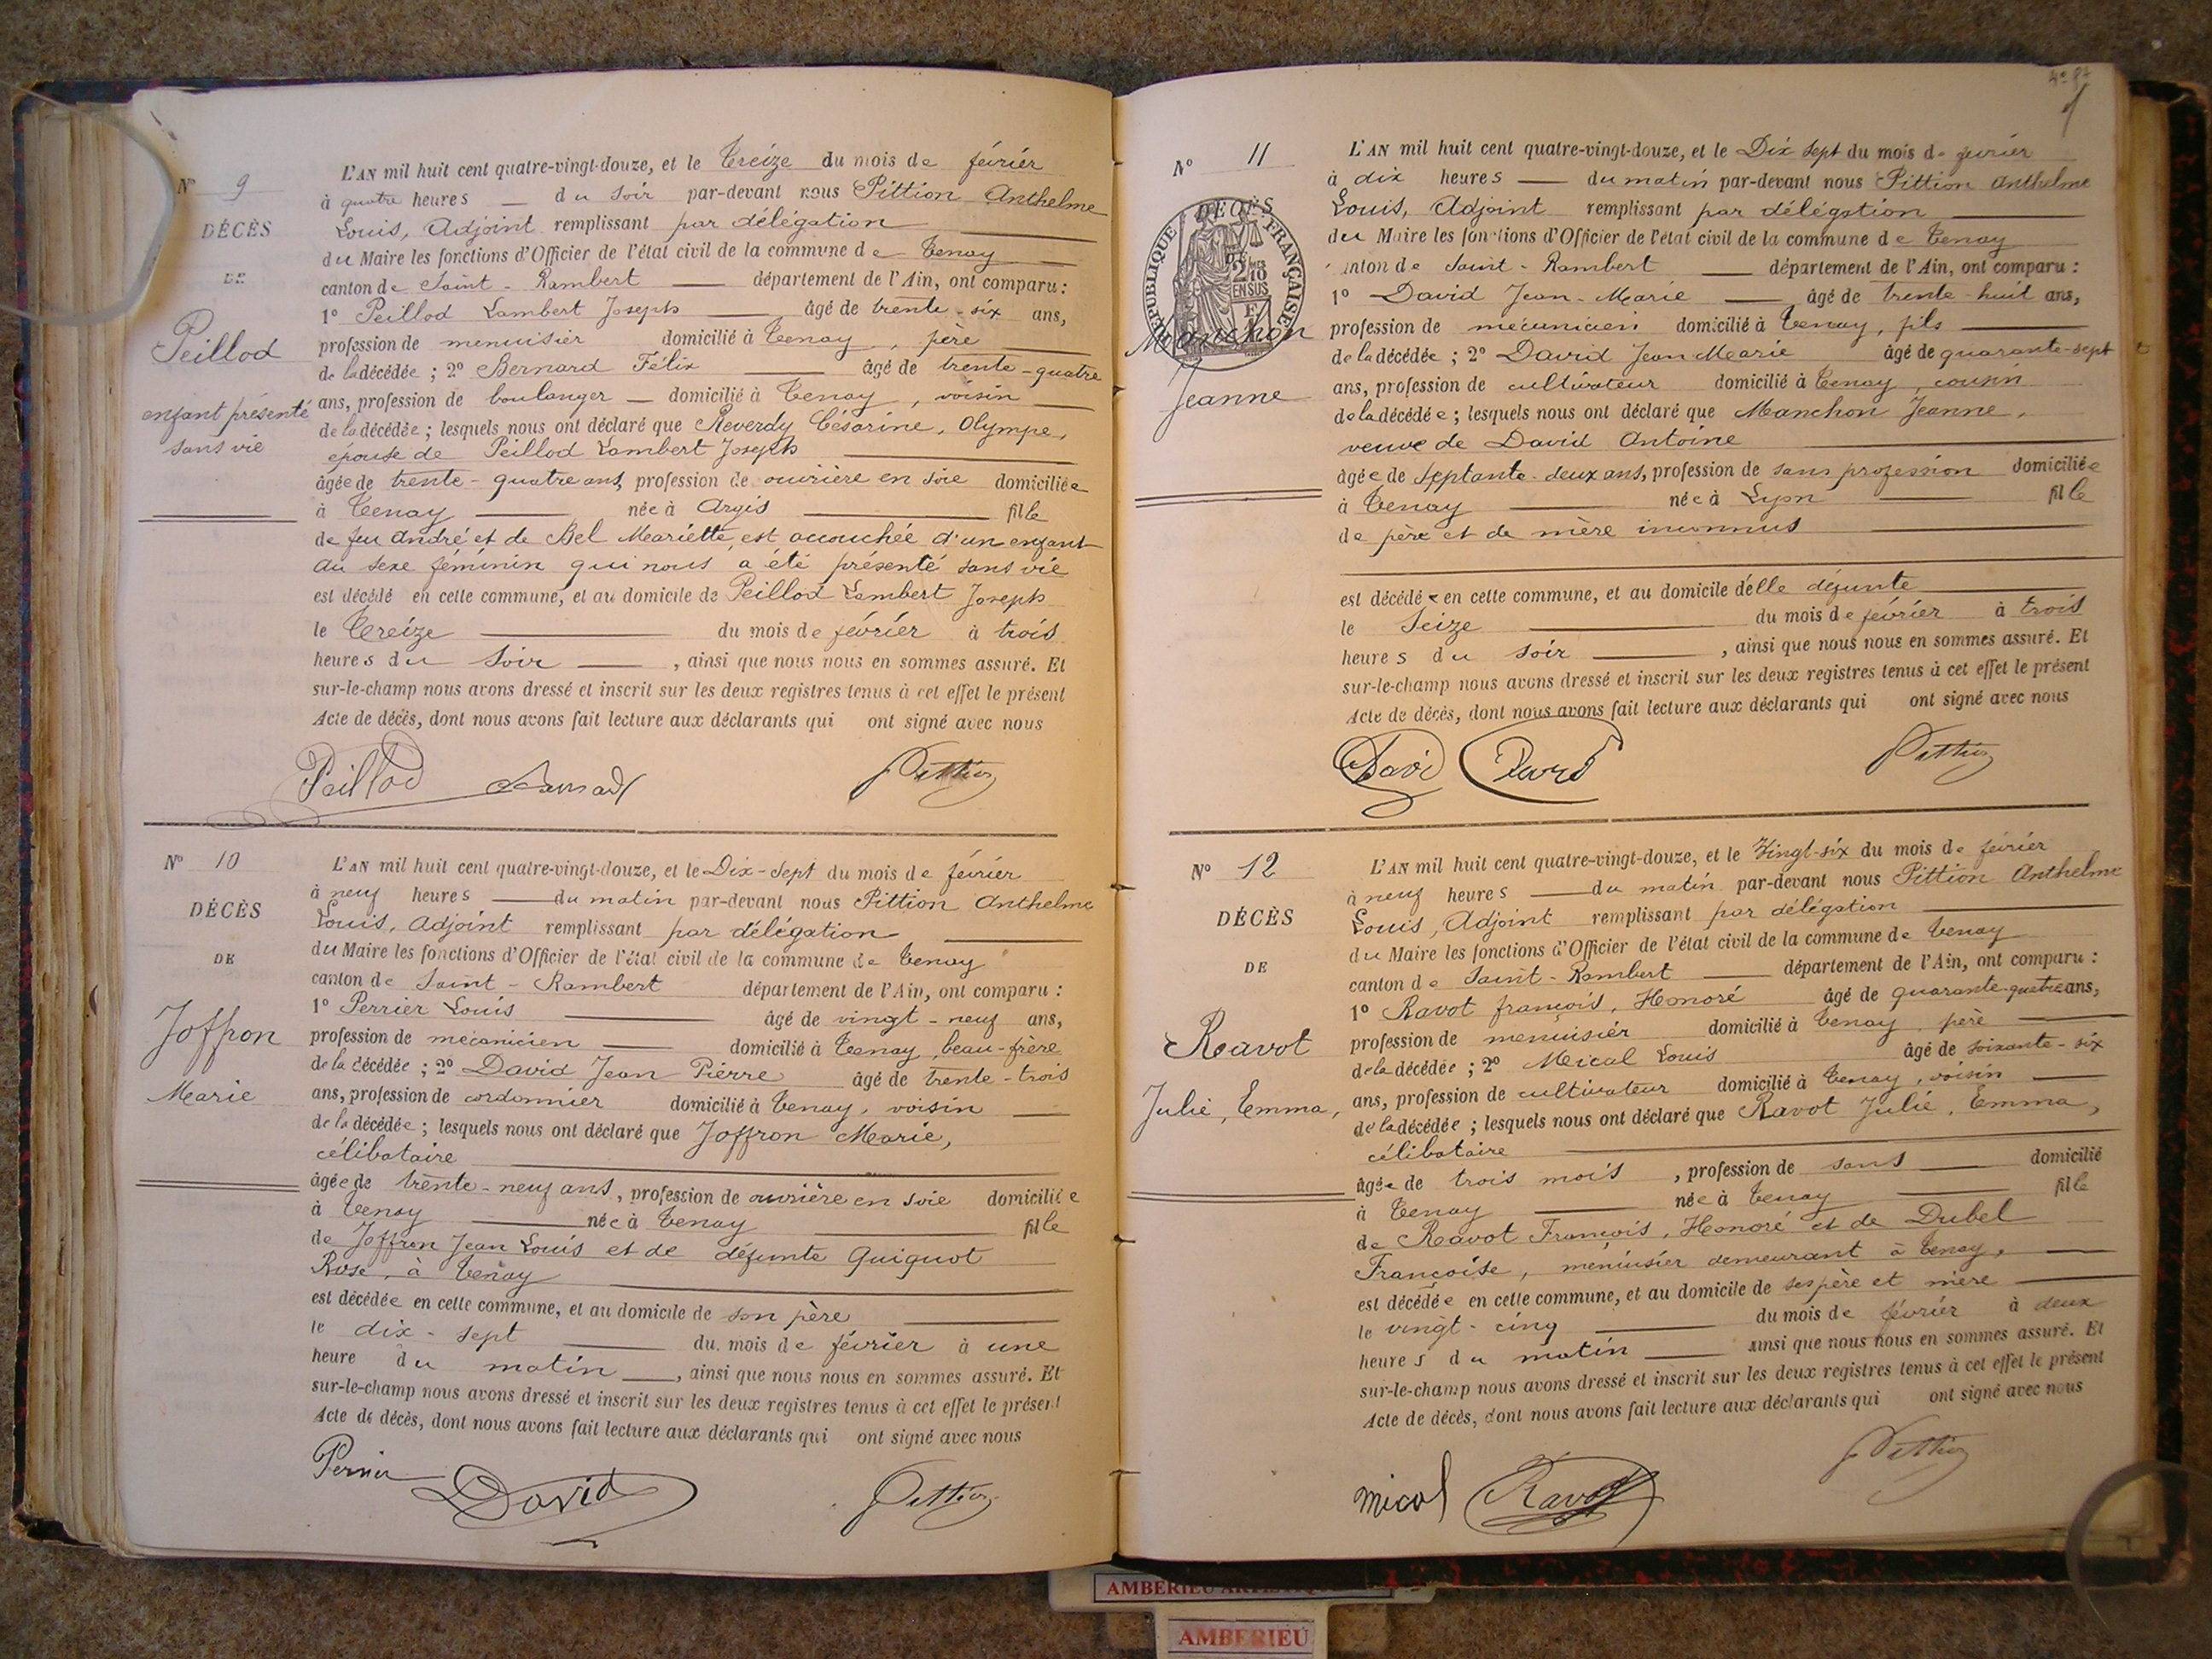 N° 9
DÉCÈS
DE
Peillod
enfant présenté
sans vie
L'AN mil huit cent quatre-vingt-douze, et le Treize du mois de février
à quatre heures du soir par-devant nous Pittion Anthelme
Louis, Adjoint remplissant par délégation
du Maire les fonctions d'Officier de l'état civil de la commune de Tenay
canton de Saint-Rambert département de l'Ain, ont comparu :
1° Peillod Lambert Joseph âgé de trente-six ans,
profession de menuisier domicilié à Tenay, père
de la décédée ; 2° Bernard Félix âgé de trente-quatre
ans, profession de boulanger domicilié à Tenay, voisin
de la décédée ; lesquels nous ont déclaré que Reverdy Césarine, Olympe,
épouse de Peillod Lambert Joseph
âgée de trente-quatre ans, profession de ouvrière en soie domiciliée
à Tenay née à Argis fille
de feu André et de Bel Mariette, est accouchée d'un enfant
du sexe féminin qui nous a été présenté sans vie
est décédé en cette commune, et au domicile de Peillod Lambert Joseph
le Treize du mois de février à trois
heures du soir, ainsi que nous nous en sommes assuré. Et
sur-le-champ nous avons dressé et inscrit sur les deux registres tenus à cet effet le présent
Acte de décès, dont nous avons fait lecture aux déclarants qui ont signé avec nous
Peillod Bernard Pittion
N° 10
DÉCÈS
DE
Joffron
Marie
L'AN mil huit cent quatre-vingt-douze, et le Dix-Sept du mois de février
à neuf heures du matin par-devant nous Pittion Anthelme
Louis, Adjoint remplissant par délégation
du Maire les fonctions d'Officier de l'état civil de la commune de Tenay
canton de Saint-Rambert département de l'Ain, ont comparu :
1° Perrier Louis âgé de vingt-neuf ans,
profession de mécanicien domicilié à Tenay, beau-frère
de la décédée ; 2° David Jean Pierre âgé de trente-trois
ans, profession de cordonnier domicilié à Tenay, voisin
de la décédée ; lesquels nous ont déclaré que Joffron Marie,
célibataire
âgée de trente-neuf ans, profession de ouvrière en soie domiciliée
à Tenay née à Tenay fille
de Joffron Jean Louis et de défunte Guiguot
Rose, à Tenay
est décédée en cette commune, et au domicile de son père
le dix-sept du mois de février à une
heure du matin, ainsi que nous nous en sommes assuré. Et
sur-le-champ nous avons dressé et inscrit sur les deux registres tenus à cet effet le présent
Acte de décès, dont nous avons fait lecture aux déclarants qui ont signé avec nous
Perrier David Pittion
N° 11
DÉCÈS
RÉPUBLIQUE FRANÇAISE
2/10 EN SUS
Manchon
Jeanne
L'AN mil huit cent quatre-vingt-douze, et le Dix Sept du mois de février
à dix heures du matin par-devant nous Pittion Anthelme
Louis, Adjoint remplissant par délégation
du Maire les fonctions d'Officier de l'état civil de la commune de Tenay
canton de Saint-Rambert département de l'Ain, ont comparu :
1° David Jean-Marie âgé de trente-huit ans,
profession de mécanicien domicilié à Tenay, fils
de la décédée ; 2° David Jean Marie âgé de quarante-sept
ans, profession de cultivateur domicilié à Tenay, cousin
de la décédée ; lesquels nous ont déclaré que Manchon Jeanne,
veuve de David Antoine
âgée de septante-deux ans, profession de sans profession domiciliée
à Tenay née à Lyon fille
de père et de mère inconnus
est décédée en cette commune, et au domicile d'elle défunte
le Seize du mois de février à trois
heures du soir, ainsi que nous nous en sommes assuré. Et
sur-le-champ nous avons dressé et inscrit sur les deux registres tenus à cet effet le présent
Acte de décès, dont nous avons fait lecture aux déclarants qui ont signé avec nous
David David Pittion
N° 12
DÉCÈS
DE
Ravot
Julie, Emma,
L'AN mil huit cent quatre-vingt-douze, et le Vingt-six du mois de février
à neuf heures du matin par-devant nous Pittion Anthelme
Louis, Adjoint remplissant par délégation
du Maire les fonctions d'Officier de l'état civil de la commune de Tenay
canton de Saint-Rambert département de l'Ain, ont comparu :
1° Ravot françois, Honoré âgé de quarante-quatre ans,
profession de menuisier domicilié à Tenay, père
de la décédée ; 2° Mical Louis âgé de soixante-six
ans, profession de cultivateur domicilié à Tenay, voisin
de la décédée ; lesquels nous ont déclaré que Ravot Julie, Emma,
célibataire
âgée de trois mois, profession de sans domicilié
à Tenay née à Tenay fille
de Ravot François, Honoré et de Dubel
Françoise, menuisier demeurant à Tenay,
est décédée en cette commune, et au domicile de ses père et mère
le vingt-cinq du mois de février à deux
heures du matin ainsi que nous nous en sommes assuré. Et
sur-le-champ nous avons dressé et inscrit sur les deux registres tenus à cet effet le présent
Acte de décès, dont nous avons fait lecture aux déclarants qui ont signé avec nous
Mical Ravot Pittion
AMBERIEU
AMBERIEU